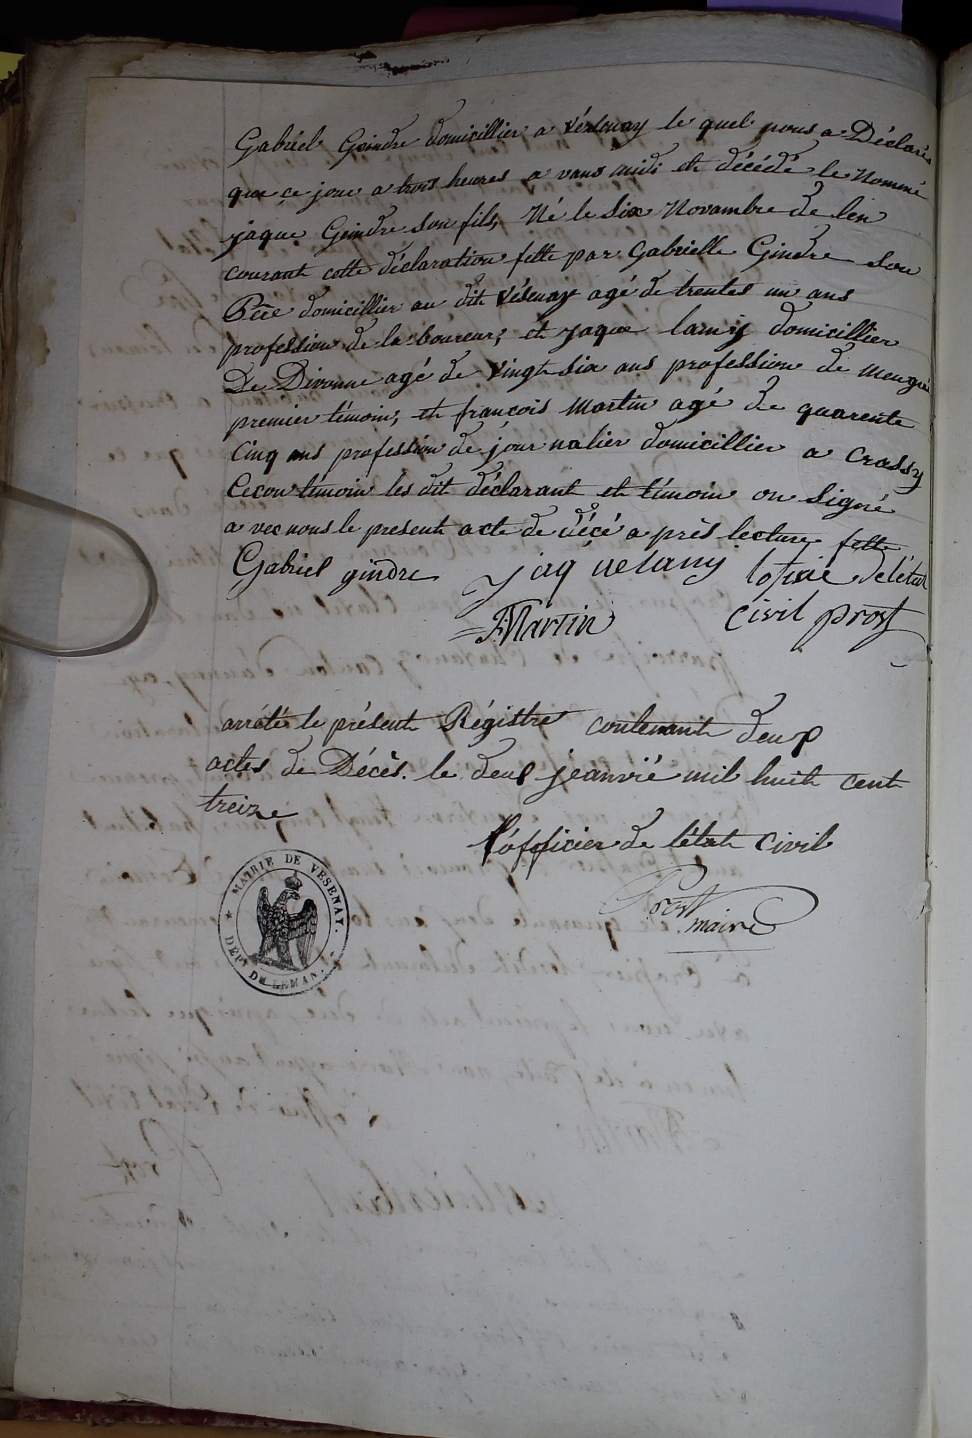 Gabriel Geindre domicillier a Vésenay le quel nous a Déclaré
que ce jour a trois heures a vans midi et décédé le Nommé
jaque Geindre son fils, Né le six Novambre de l'en
courant cette déclaration fette par Gabrielle Gindre son
Père domicillier au dit Vésenay agé de trentes un ans
profession de la boureur; et jaque lamy domicillier
De Divonne agé de Vingt six ans profession de
premier témoin; et françois Martin agé de quarente
Cinq ans profession de jour nalier domicillier a Crassy
Cecon témoin les dit déclarant et témoin on Signé
a vec nous le present acte de décé a près lecture fette
Gabriel gindre jaque lamy lofisié de létat
civil prost
FMartin
arrétés le présent Régistre contenant deux
actes de Décès. le deux jeanvié mil huit cent
treize
l'ófficier de létat Civil
Prost
maire
MAIRIE DE VESENAY.
DEPT DU LEMAN.